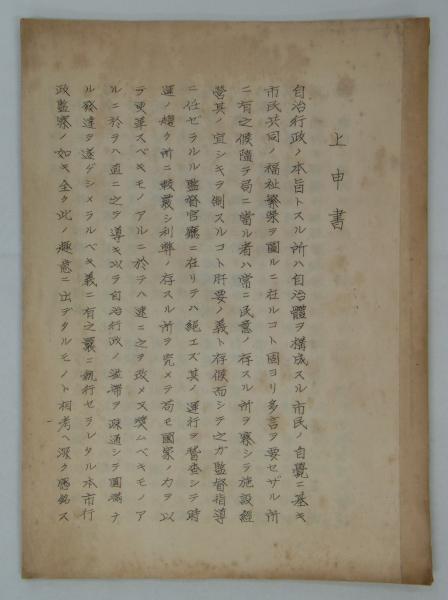 上申書
自治行政ノ本旨トスル所ハ自治體ヲ構成スル市民ノ自覺ニ基キ
市民共同ノ福祉繁榮ヲ圖ルニ在ルコト固ヨリ多言ヲ要セザル所
ニ有之候隨テ局ニ當ル者ハ常ニ民意ノ存スル所ヲ察シテ施設經
營其ノ宜シキヲ制スルコト肝要ノ義ト存候而シテ之ガ監督指導
ニ任ゼラルル監督官廳ニ在リテハ絶エズ其ノ運行ヲ督査シテ時
運ノ趨ク所ニ較覈シ利弊ノ存スル所ヲ究メテ苟モ國家ノ力ヲ以
テ更革スベキモノアルニ於テハ速ニ之ヲ改メ又奬ムベキモノア
ルニ於テハ直ニ之ヲ導キ以テ自治行政ノ澁滯ヲ疎通シテ圓滿ナ
ル發達ヲ遂ゲシメラルベキ義ニ有之曩ニ執行セラレタル本市行
政監察ノ如キ全ク此ノ趣意ニ出デタルモノト相考ヘ深ク感銘ス